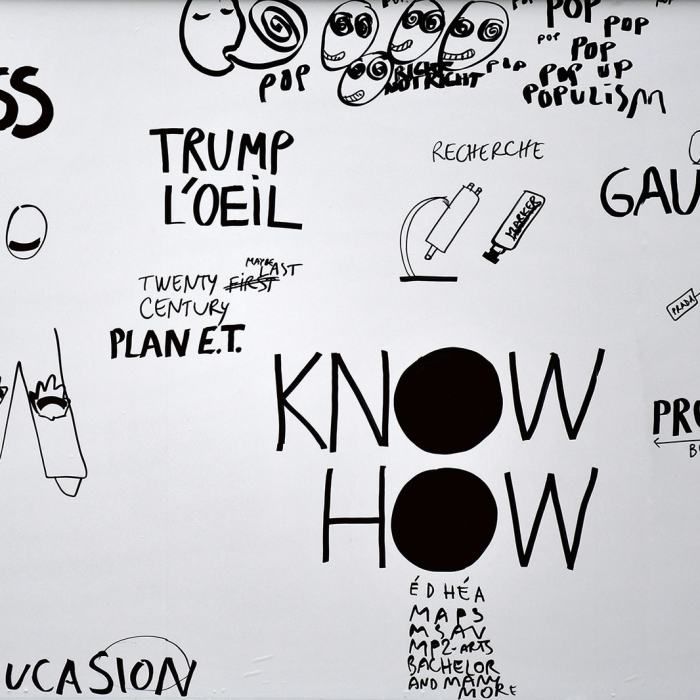 POP
POP
POP
POP
POP
POP
POP UP
POPULISM
POP
RIGHT
NOT RIGHT
SS
TRUMP
L'OEIL
RECHERCHE
MARKER
GAU
MAYBE LAST
TWENTY FIRST
CENTURY
PLAN E.T.
PRADA
KNOW
HOW
PRO
B
ÉDHÉA
MAPS
MSAV
MP2-ARTS
BACHELOR
AND MANY
MORE
UCASION